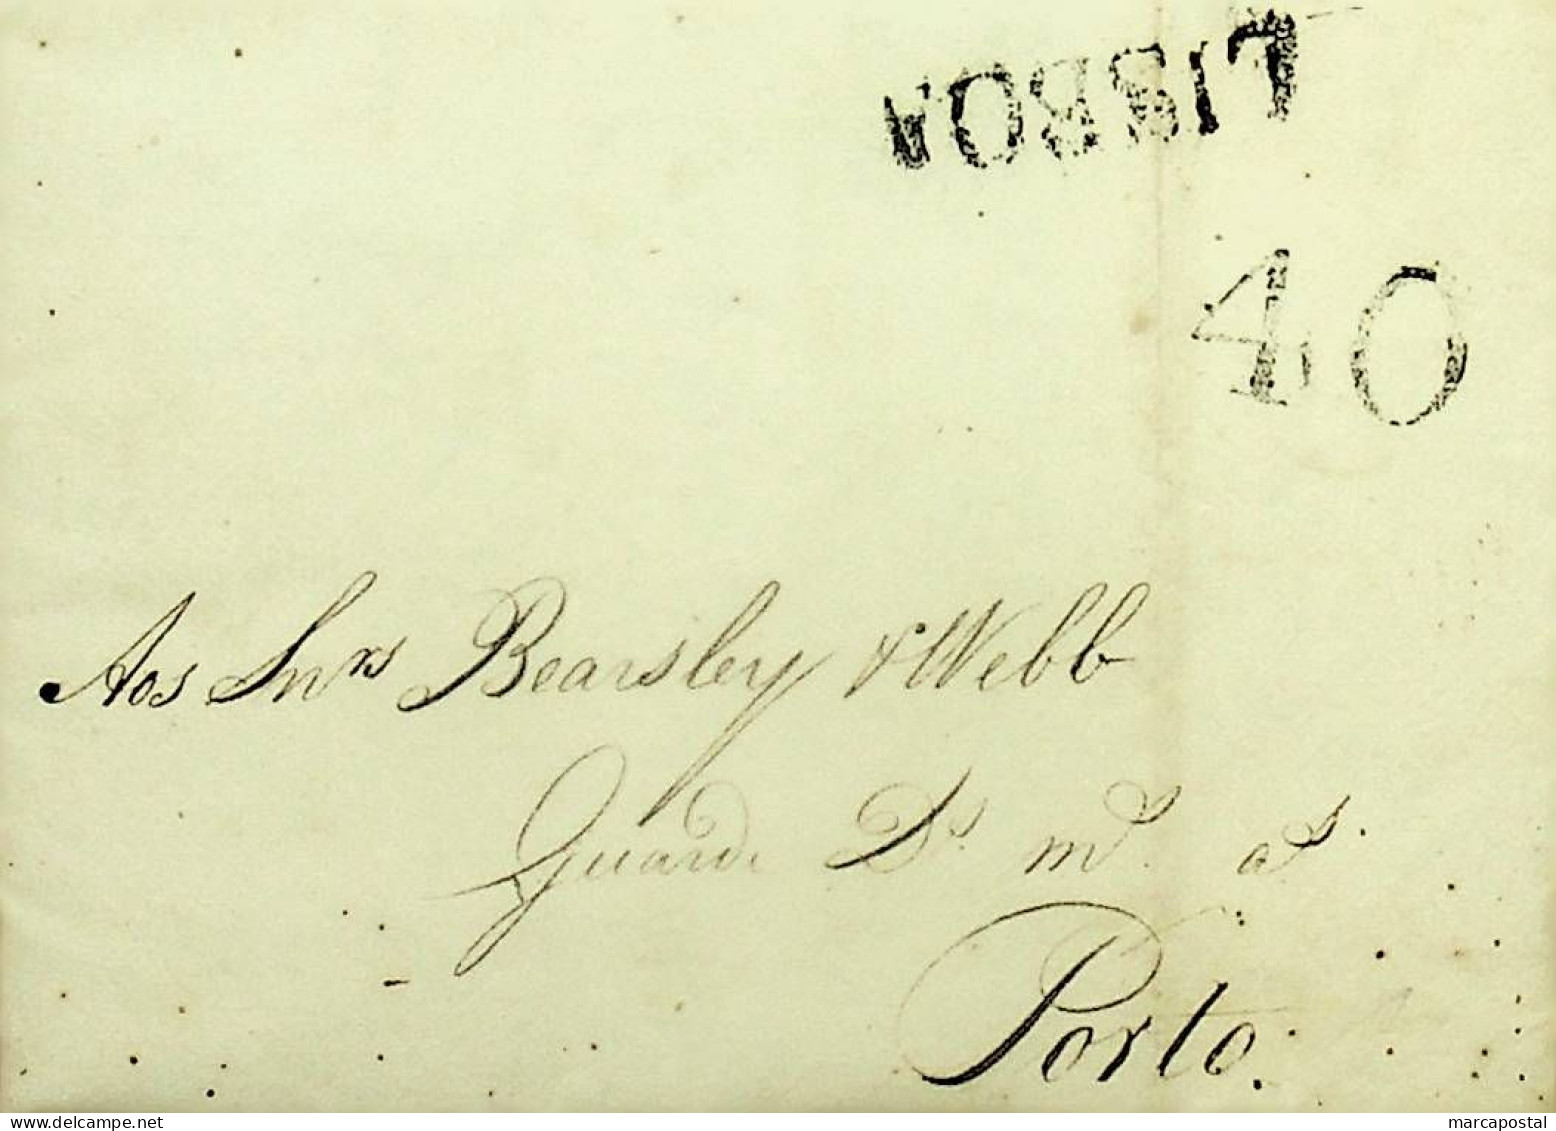 LISBOA
40
Aos Snrs Bearsley & Webb
Guarde Ds. ms. as.
Porto.
www.delcampe.net
marcapostal